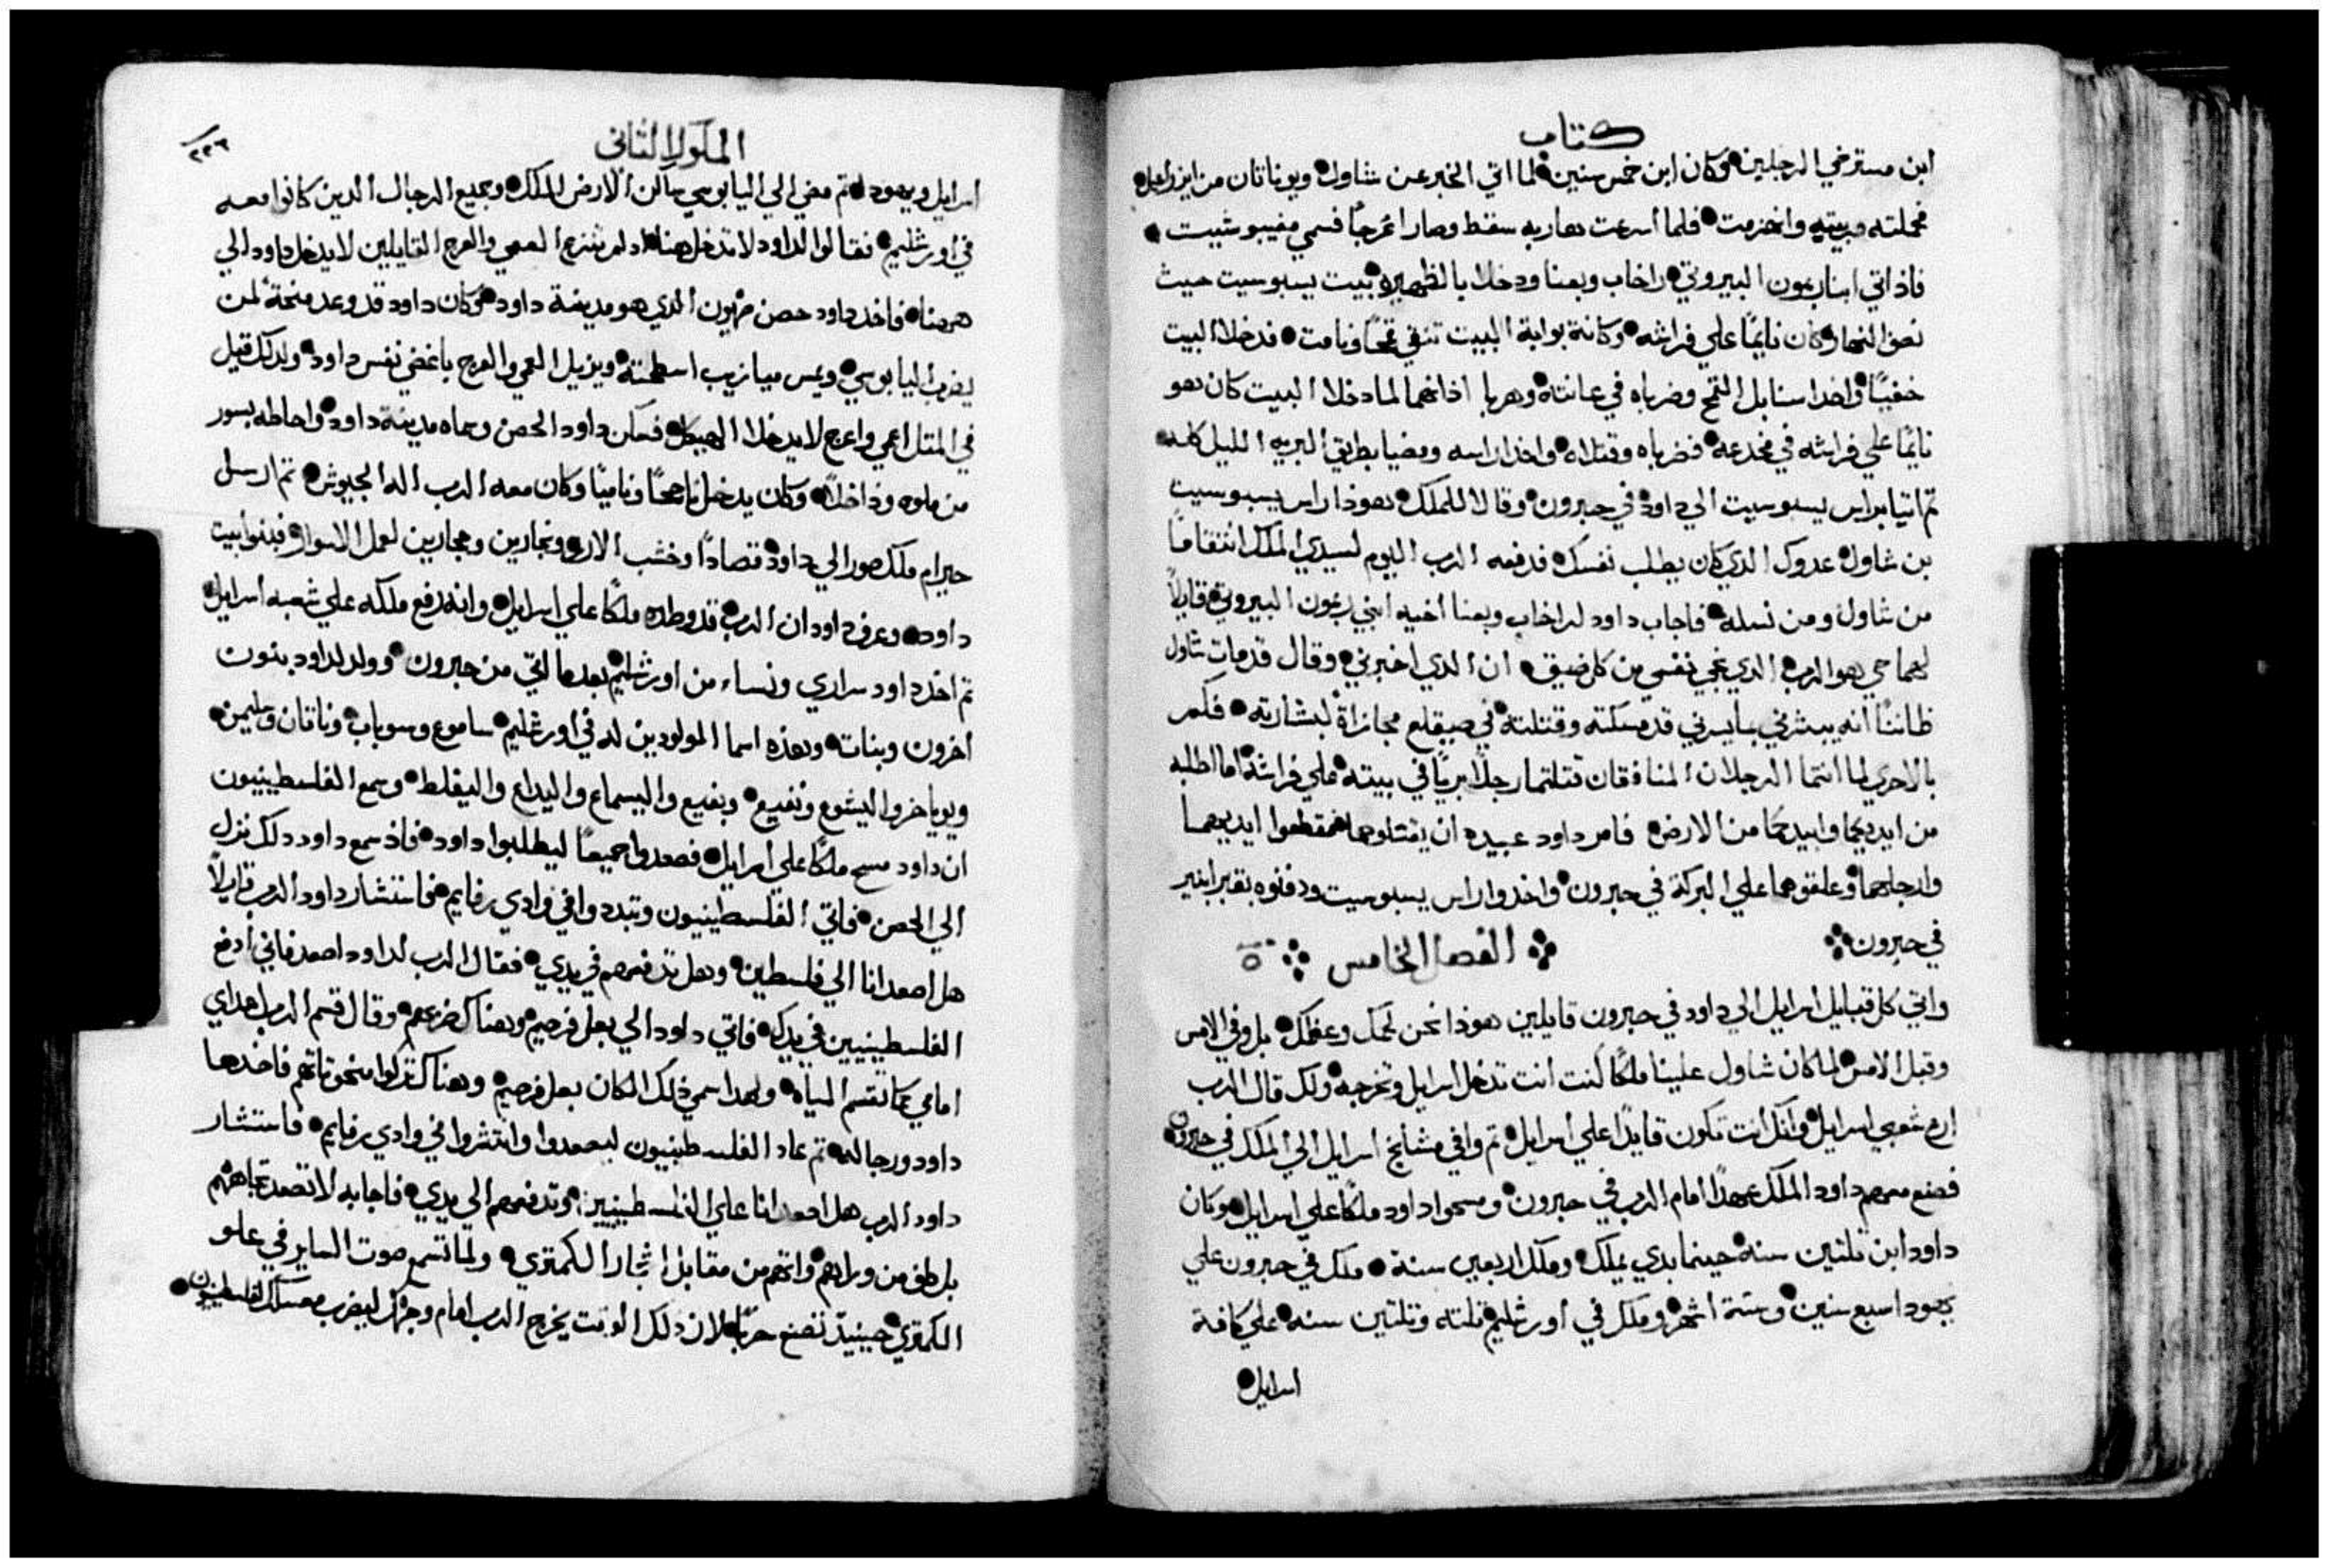 كتاب
ابن مسترخي الرجلين وكان ابن خمس سنين لما اتي الخبر عن شاول ويوناتان من ايزراعيل
فحملته مربيته وانهزمت فلما أسرعت هاربه سقط وصار اعرجاً فسمي مفيبوشيت
فاذ اتي ابنا رمون البيروتي راخاب وبعنا ودخلا بالظهيرة بيت يسبوسيت حيث
نصف النهار وكان نايمًا علي فراشه وكانة بوابة البيت تنقي قمحًا ونامت فدخلا البيت
خفيتًا واخدا سنابل القمح وضرباه في عانته وهربا اذ انهما لما دخلا البيت كان هو
نايمًا علي فراشه في مخدعه فضرباه وقتلاه واخدا راسه ومضيا بطريق البريه الليل كله
تم اتيا براس يسبوسيت الي داود في حبرون وقالا للملك هوذا راس يسبوسيت
بن شاول عدوك الدي كان يطلب نفسك فدفعه الرب اليوم لسيدي الملك انتقامًا
من شاول ومن نسله فاجاب داود لراخاب وبعنا أخيه ابني رمون البيروتي قايلاً
لهما حي هو الرب الدي نجي نفسي من كل ضيق ان الدي اخبرني وقال قد مات شاول
ظاننًا أنه يبشرني بأيسرني قد مسكته وقتلته في صيقلع مجازاة لبشارته فكم
بالاحري لما انتما الرجلان المنافقان قتلتما رجلاً بريًا في بيته علي فراشه اما اطلبه
من ايديكما وابيدكما من الارض فامر داود عبيده ان يقتلوهما فقطعوا ايديهما
وارجلهما وعلقوهما علي البركة في حبرون واخدوا راس يسبوسيت ودفنوه بقبر ابنير
في حبرون الفصل الخامس ٥
واتي كل قبايل اسرايل الي داود في حبرون قايلين هوذا نحن لحمك وعظمك بل وفي الامس
وقبل الامس لما كان شاول علينا ملكًا كنت أنت تدخل اسرايل وتخرجه ولك قال الرب
ارع شعبي اسرايل وانك انت تكون قايدًا علي اسرايل تم وافي مشايخ اسرايل الي الملك في حبرون
فصنع معهم داود الملك عهدًا امام الرب في حبرون ومسحوا داود ملكًا علي اسرايل وكان
داود ابن تلتين سنه حينما بدي يملك وملك اربعين سنة ملك في حبرون علي
يهودا سبع سنين وستة أشهر وملك في أورشليم تلته وتلتين سنه علي كافة
اسرايل
الملوك الثاني
٢٣٦
اسرايل ويهودا تم مضي الي اليابوسي ساكن الارض الملك وجميع الرجال الدين كانوا معه
في أورشليم فقالوا لداود لا تدخل هنا اد لم تنزع العمي والعرج القايلين لا يدخل داود الي
ههنا فاخد داود حصن صهيون الدي هو مدينة داود وكان داود قد وعد منحة لمن
يضرب اليابوسي ويمس ميازيب اسطحته ويزيل العمي والعرج باغضي نفس داود ولدلك قيل
في المتل اعمي واعرج لا يدخلا الهيكل فسكن داود الحصن وسماه مدينة داود واحاطه بسور
من ملوه وداخلاً وكان يدخل ناجحًا وناميًا وكان معه الرب اله الجيوش تم ارسل
حيرام ملك صور الي داود قصادًا وخشب الارز ونجارين وحجارين لعمل الاسوار فبنوا بيت
داود وعرف داود ان الرب قد وطده ملكًا علي اسرايل وانه رفع ملكه علي شعبه اسرايل
تم اخد داود سراري ونساء من اورشليم بعدما اتي من حبرون وولد لداود بنون
أخرون وبنات وهذه اسما المولودين له في أورشليم ساموع وسوباب وناتان وسليمن
ويوباخر واليشوع ونفيع ويفيع واليسماع واليداع واليفلط وسمع الفلسطينيون
ان داود مسح ملكًا علي اسرايل فصعدوا جميعًا ليطلبوا داود فاذ سمع داود دلك نزل
الي الحصن فاتي الفلسطينيون وتبددوا في وادي رفايم فاستشار داود الرب قايلاً
هل اصعد انا الي فلسطين وهل تدفعهم في يدي فقال الرب لداود اصعد فاني أدفع
الفلسطينيين في يدك فاتي داود الي بعل فرصيم وهناك ضربهم وقال قسم الرب اعداي
امامي كما تقسم المياه ولهدا سمي ذلك المكان بعل فرصيم وهناك تركوا منحوتاتهم فاخدها
داود ورجاله تم عاد الفلسطينيون ليصعدوا وانتشروا في وادي رفايم فاستشار
داود الرب هل اصعد انا علي الفلسطينيين وتدفعهم الي يدي فاجابه لا تصعد تجاههم
بل طف من وراهم واتهم من مقابل اشجار الكمتري ولما تسمع صوت الساير في علو
الكمتري حينيدٍ تصنع حربًا لان دلك الوقت يخرج الرب امام وجهك ليضرب معسكر الفلسطينيون